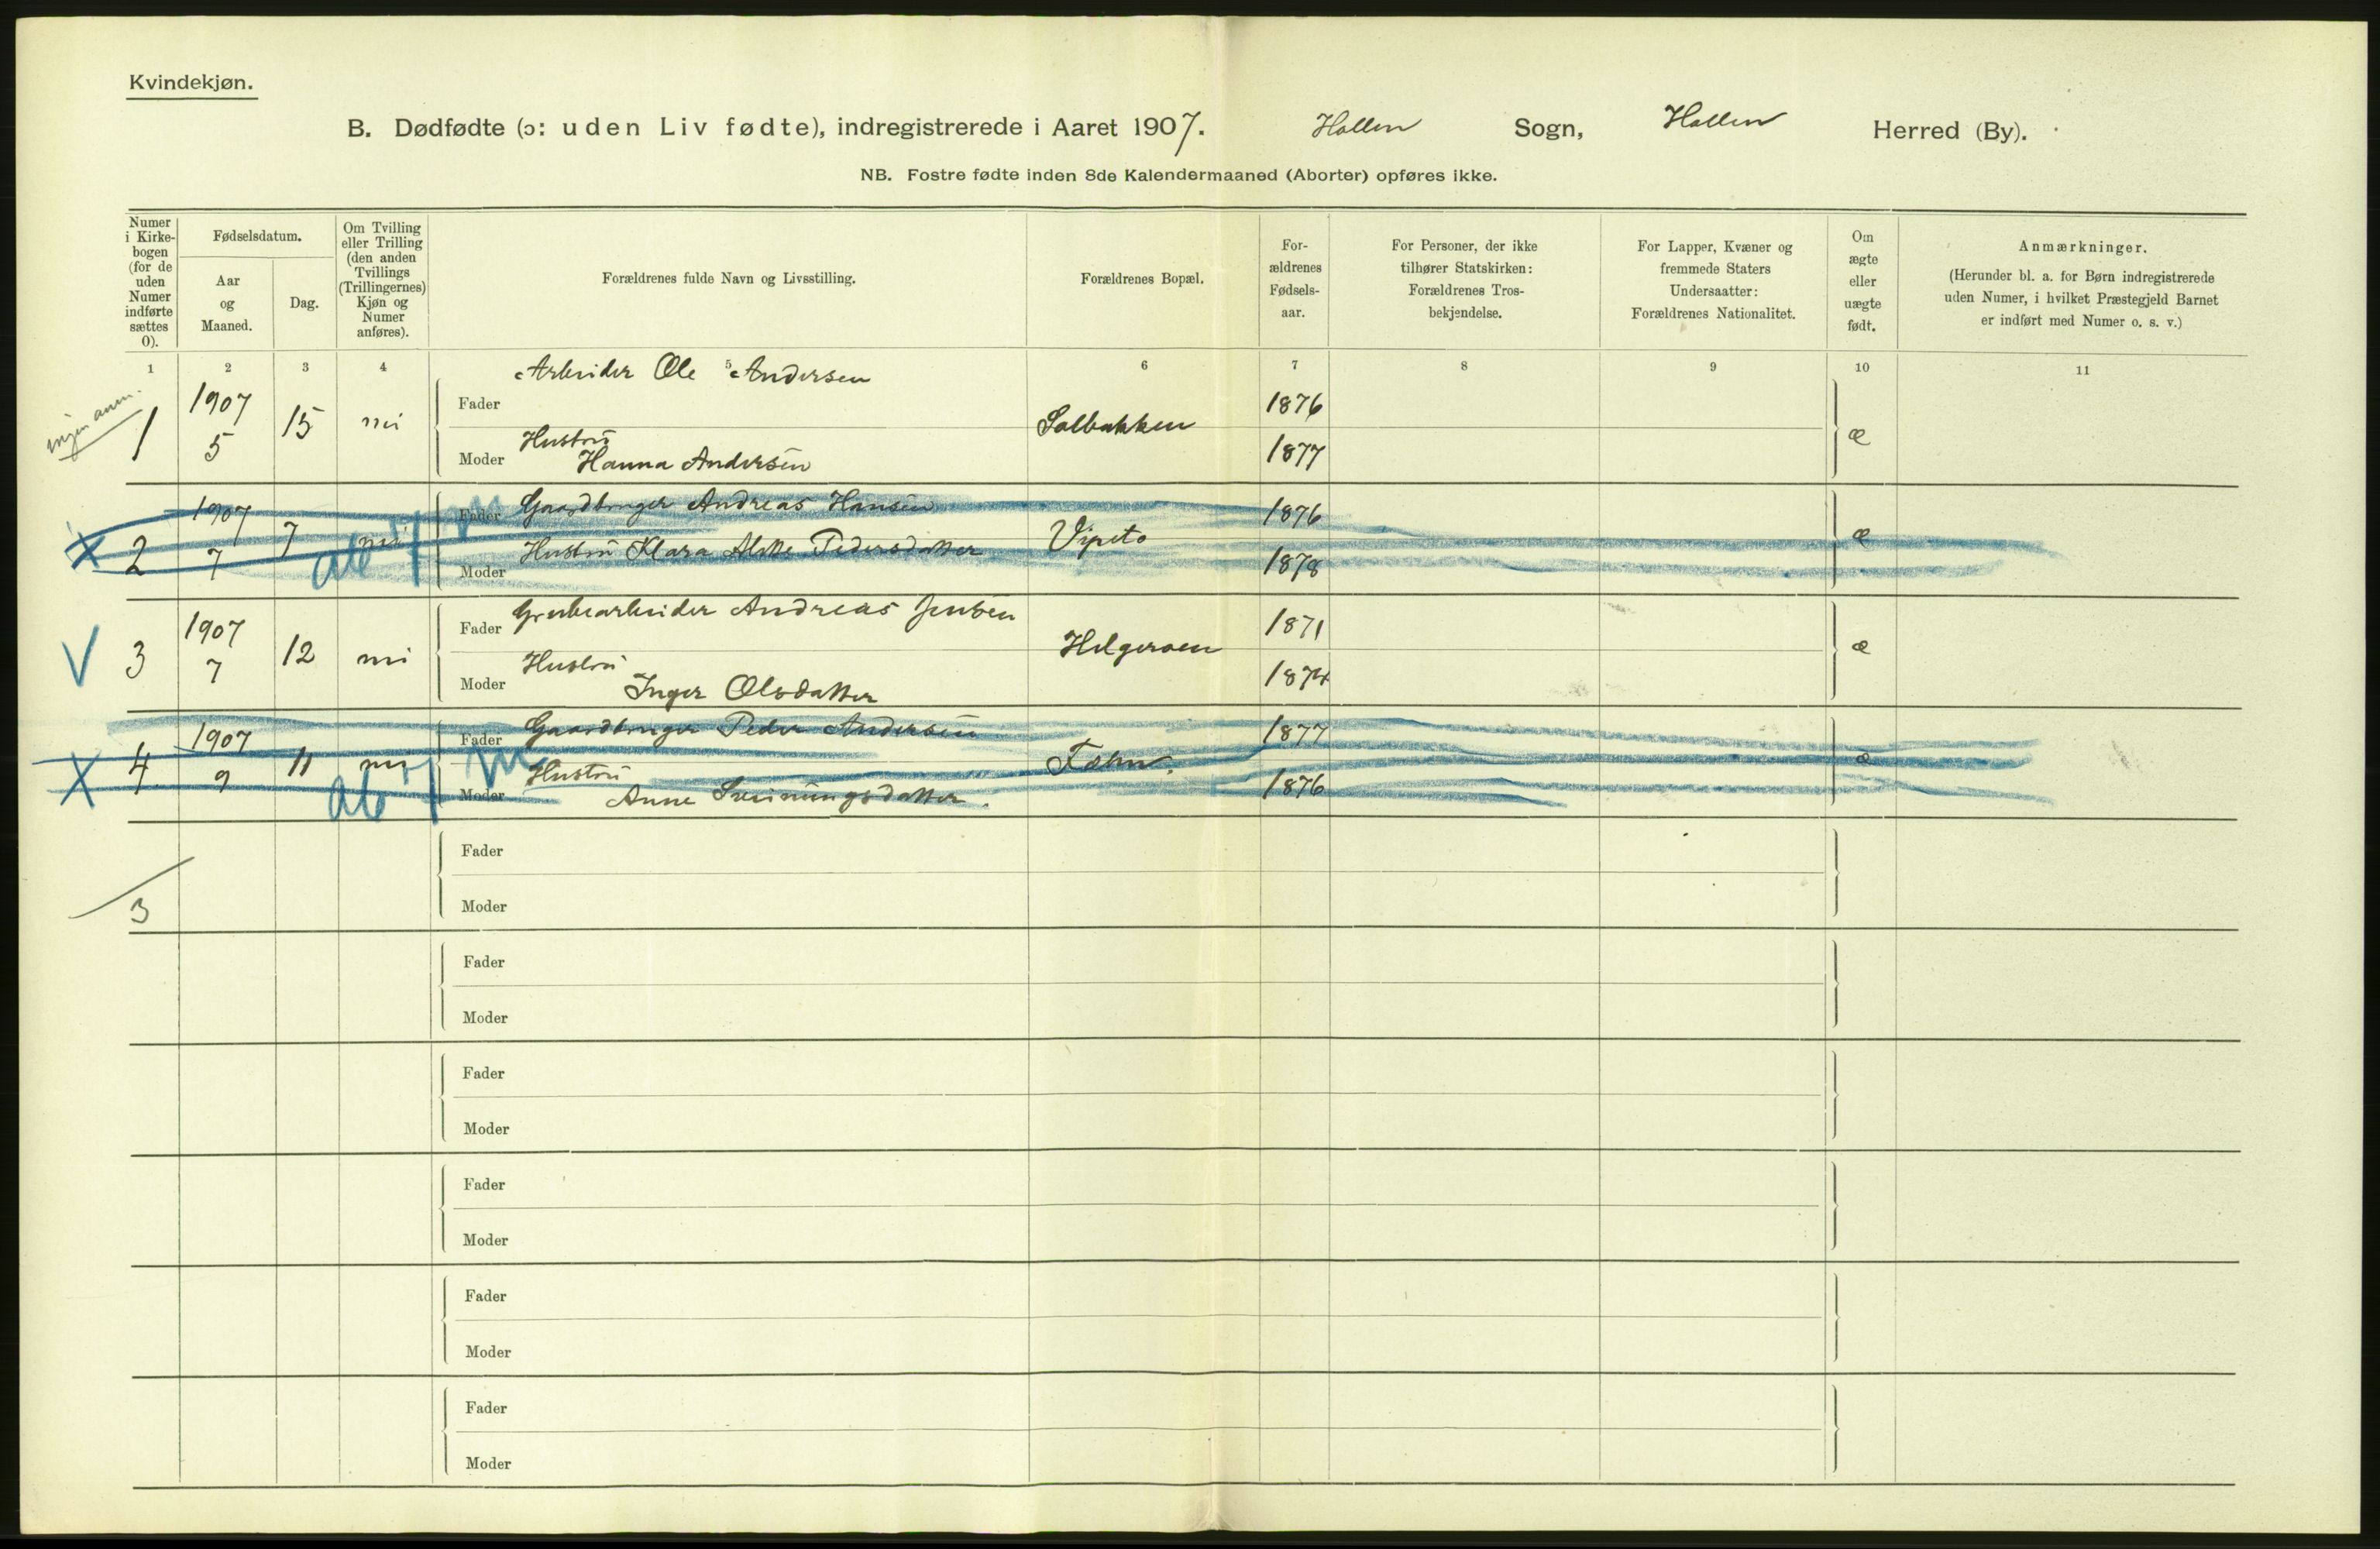 Kvindekjøn.
B. Dødfødte (ɔ: uden Liv fødte), indregistrerede i Aaret 1907. Hollen Sogn, Hollen Herred (By).
NB. Fostre fødte inden 8de Kalendermaaned (Aborter) opføres ikke.
Numer i Kirke-bogen (for de uden Numer indførte sættes 0).
Fødselsdatum.
Aar og Maaned.
Dag.
Om Tvilling eller Trilling (den anden Tvillings (Trillingernes) Kjøn og Numer anføres).
Forældrenes fulde Navn og Livsstilling.
Forældrenes Bopæl.
For-ældrenes Fødsels-aar.
For Personer, der ikke tilhører Statskirken: Forældrenes Tros-bekjendelse.
For Lapper, Kvæner og fremmede Staters Undersaatter: Forældrenes Nationalitet.
Om ægte eller uægte født.
Anmærkninger.
(Herunder bl. a. for Børn indregistrerede uden Numer, i hvilket Præstegjeld Barnet er indført med Numer o. s. v.)
1 2 3 4 5 6 7 8 9 10 11
ingen anm.
1 1907 5 15 nei
Fader Arbeider Ole Andersen
Moder Hustru Hanna Andersen
Solbakken 1876 1877 æ
X 2 1907 7 7 nei
Fader Gaardbruger Andreas Hansen
Moder Hustru Klara Pedersdatter
Vipeto 1876 1878 æ
V 3 1907 7 12 nei
Fader Grubearbeider Andreas Jensen
Moder Hustru Inger Olsdatter
Helgeroen 1871 1874 æ
X 4 1907 9 11 nei
Fader Gaardbruger Peder Andersen
Moder Hustru Anne Sveinungsdatter.
1877 1876 æ
Fader
Moder
3
Fader
Moder
Fader
Moder
Fader
Moder
Fader
Moder
Fader
Moder